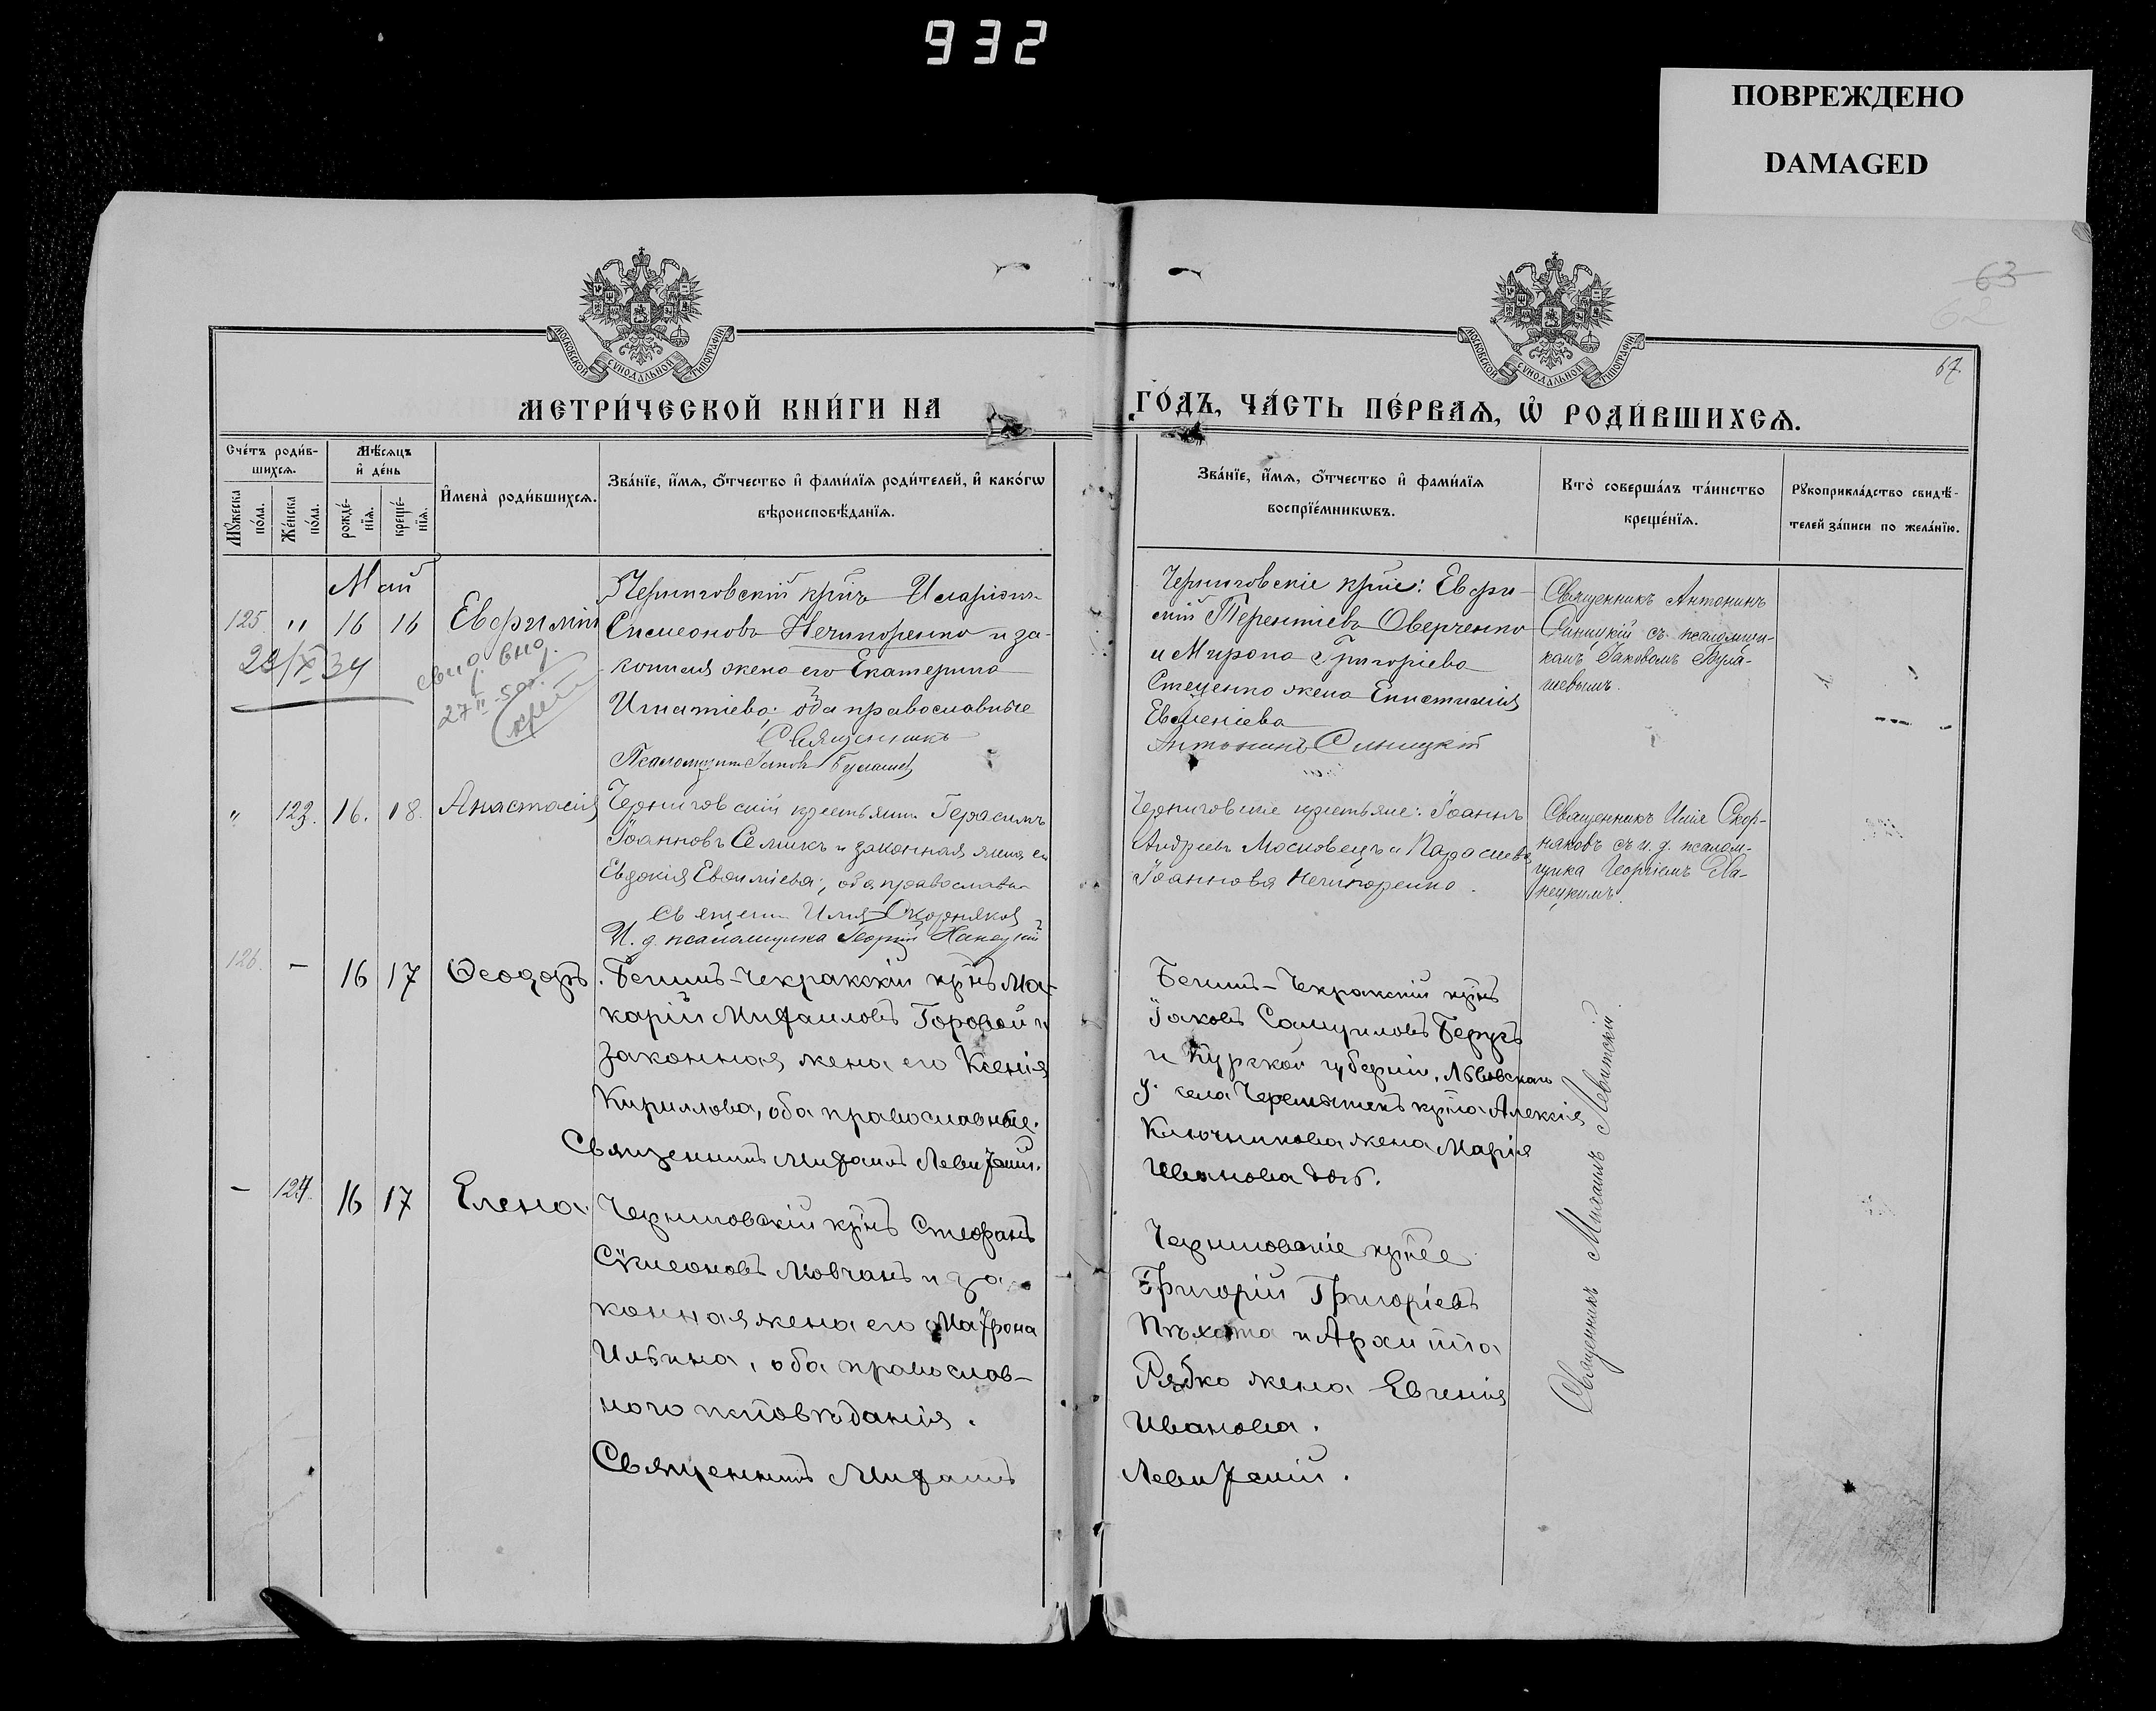 932
ПОВРЕЖДЕНО
DAMAGED
63
62
67.
МОСКОВСКОЙ СУНОДАЛЬНОЙ ТИПОГРАФІИ
МОСКОВСКОЙ СУНОДАЛЬНОЙ ТИПОГРАФІИ
МЕТРИ́ЧЕСКОЙ КНИ́ГИ НА
ГО́ДЪ, ЧА́СТЬ ПЕ́РВАѦ, Ѿ РОДИ́ВШИХСѦ.
Сче́тъ роди́в-
шихсѧ.
Мꙋ́жеска
по́ла.
Же́нска
по́ла.
Мѣ́сѧцъ
и҆ де́нь
рожде́-
нїѧ.
креще́-
нїѧ.
И҆мена̀ роди́вшихсѧ.
Зва́нїе, и҆́мѧ, ѻ҆́тчество и҆ фами́лїѧ роди́телей, и҆ како́гѡ
вѣроисповѣ́данїѧ.
Зва́нїе, и҆́мѧ, ѻ҆́тчество и҆ фами́лїѧ
воспрїе́мникѡвъ.
Кто̀ соверша́лъ та́инство
креще́нїѧ.
Рꙋкоприкла́дство свидѣ́-
телей за́писи по жела́нїю.
Май
125. " 16 16 Евфимій
29/X 34
свид. выд.
27
Черниговскій крнъ Иларіонъ
Симеоновъ Нечипоренко и за-
конная жена его Екатерина
Игнатіева; оба православные
Священникъ
Псаломщикъ Іаковъ Булашев
Черниговскіе крне: Евфи-
мій Терентіевъ Оверченко
и Мирона Григоріева
Стеценко жена Епистимія
Евменіева
Антонинъ Синицкій
Священникъ Антонинъ
Синицкій съ псаломщи-
комъ Іаковомъ Була-
шевымъ.
" 123. 16. 18. Анастасія
Черниговскій крестьянинъ Герасимъ
Іоанновъ Семикъ и законная жена его
Евдокія Евфиміева; оба православн.
Священ. Илія Скорняков
И. д. псаломщика Георгій Ханецкій
Черниговскіе крестьяне: Іоаннъ
Андреевъ Московецъ и Параскева
Іоаннова Нечипоренко.
Священникъ Илія Скор-
няковъ съ и. д. псалом-
щика Георгіемъ Ха-
нецкимъ.
126. - 16 17 Ѳеодоръ.
Бегимъ-Чекракскій крнъ Ма-
карій Михаиловъ Горовой и
законная жена его Ксенія
Кириллова, оба православные.
Священникъ Михаилъ Левитскій.
Бегимъ-Чекракскій крнъ
Іаковъ Самуиловъ
и Курской губерніи, Льговскаго
у. села крна Алексія
Ключникова жена Марія
Иванова
- 124. 16 17 Елена.
Черниговскій крнъ Стефанъ
Сѵмеоновъ Мовчанъ и за-
конная жена его Матрона
Ильина, оба православ-
ного исповѣданія.
Священникъ Михаилъ
Черниговскіе крне
Григорій Григоріевъ
Пѣхота и Архипа
Рябко жена Евгенія
Иванова.
Левитскій.
Священникъ Михаилъ Левитскій